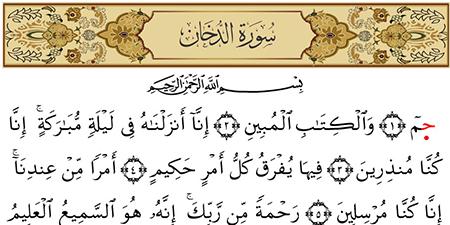 سُورَةُ الدُّخَانِ
بِسْمِ اللَّهِ الرَّحْمَٰنِ الرَّحِيمِ
حمٓ ﴿١﴾ وَالْكِتَابِ الْمُبِينِ ﴿٢﴾ إِنَّآ أَنزَلْنَاهُ فِى لَيْلَةٍ مُّبَارَكَةٍ ۚ إِنَّا
كُنَّا مُنذِرِينَ ﴿٣﴾ فِيهَا يُفْرَقُ كُلُّ أَمْرٍ حَكِيمٍ ﴿٤﴾ أَمْرًا مِّنْ عِندِنَآ ۚ
إِنَّا كُنَّا مُرْسِلِينَ ﴿٥﴾ رَحْمَةً مِّن رَّبِّكَ ۚ إِنَّهُۥ هُوَ السَّمِيعُ الْعَلِيمُ